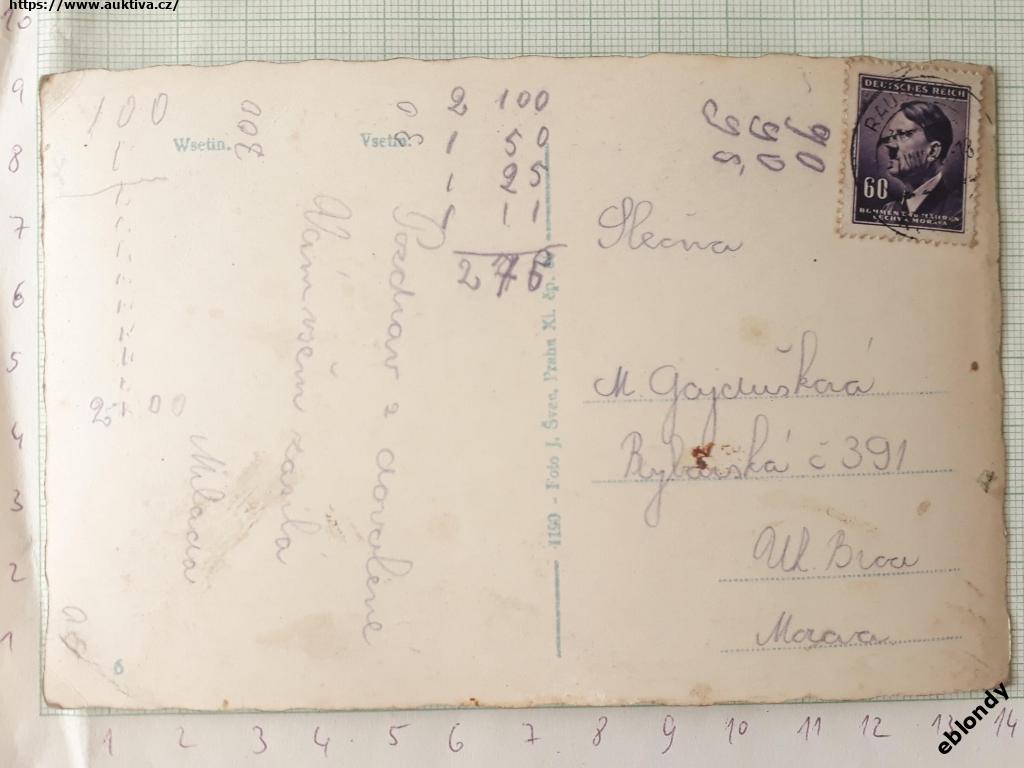 https://www.auktiva.cz/
100
Wsetin.
200
Vsetín.
50
2 100
1 50
1 25
1 11
276
2,00
Pozdrav z dovolené
Vám všem zasílá
Milada
6
1160 - Foto J. Švec, Praha XI. čp.
DEUTSCHES REICH
60
BÖHMEN UND MÄHREN
ČECHY A MORAVA
Slečna
M. Gajdušková
Rybářská č 391
Uh. Brod
Morava
10
9
8
7
6
5
4
3
2
1
1 2 3 4 5 6 7 8 9 10 11 12 13 14
eblondy